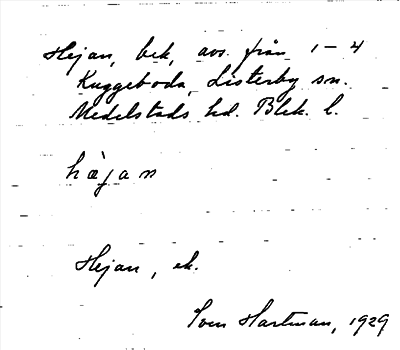 Hejan, bek, avs. från 1-4
Kuggeboda, Listerby sn.
Medelstads hd. Blek. l.
hæ̀jan
Hejan, ek.
Sven Hartman, 1929